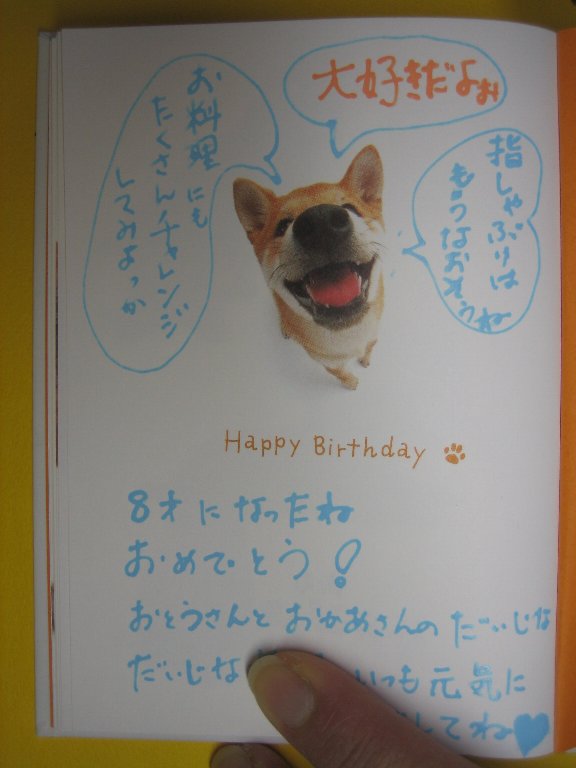 大好きだよぉ
指しゃぶりは
もうなおそうね
お料理にも
たくさんチャレンジ
してみよっか
Happy Birthday
8才になったね
おめでとう!
おとうさんとおかあさんのだいじな
だいじな いつも元気に
してね